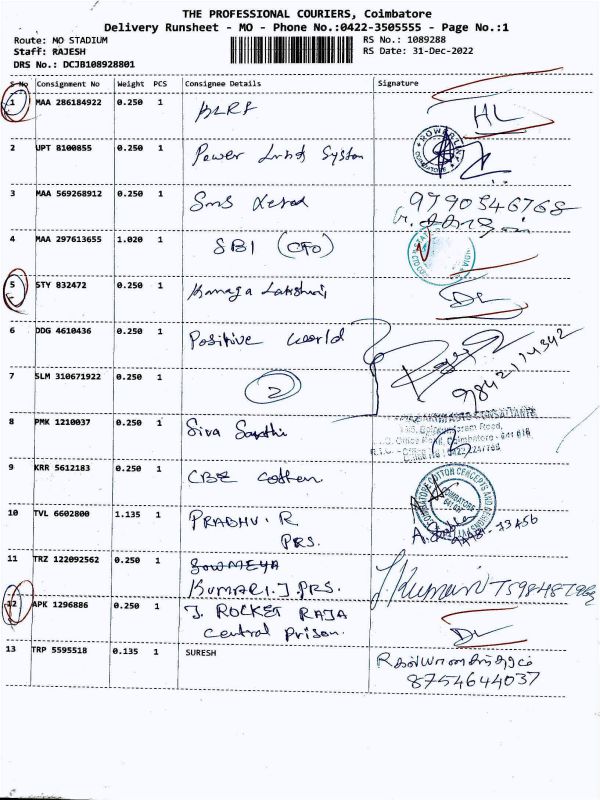 THE PROFESSIONAL COURIERS, Coimbatore
Delivery Runsheet - MO - Phone No.:0422-3505555 - Page No.:1
Route: MO STADIUM
RS No.: 1089288
Staff: RAJESH
RS Date: 31-Dec-2022
DRS No.: DCJB108928801
S No Consignment No Weight PCS Consignee Details Signature
1 MAA 286184922 0.250 1 HL
2 UPT 8100855 0.250 1 Power System
3 MAA 569268912 0.250 1 Sms 9790546768
4 MAA 297613655 1.020 1 SBI (CTO)
5 STY 832472 0.250 1 Kanaga Lakshmi DL
6 DDG 4610436 0.250 1 Positive World
7 SLM 310671922 0.250 1 2 9842114342
8 PMK 1210037 0.250 1 Siva
9 KRR 5612183 0.250 1 CBE Cotton
10 TVL 6602800 1.135 1 PRABHU. R
PRS.
11 TRZ 122092562 0.250 1 SOWMEYA
KUMARI. J PRS. J. Kumari
12 APK 1296886 0.250 1 J. ROCKET RAJA
Central Prison. DL
13 TRP 5595518 0.135 1 SURESH
8754644037